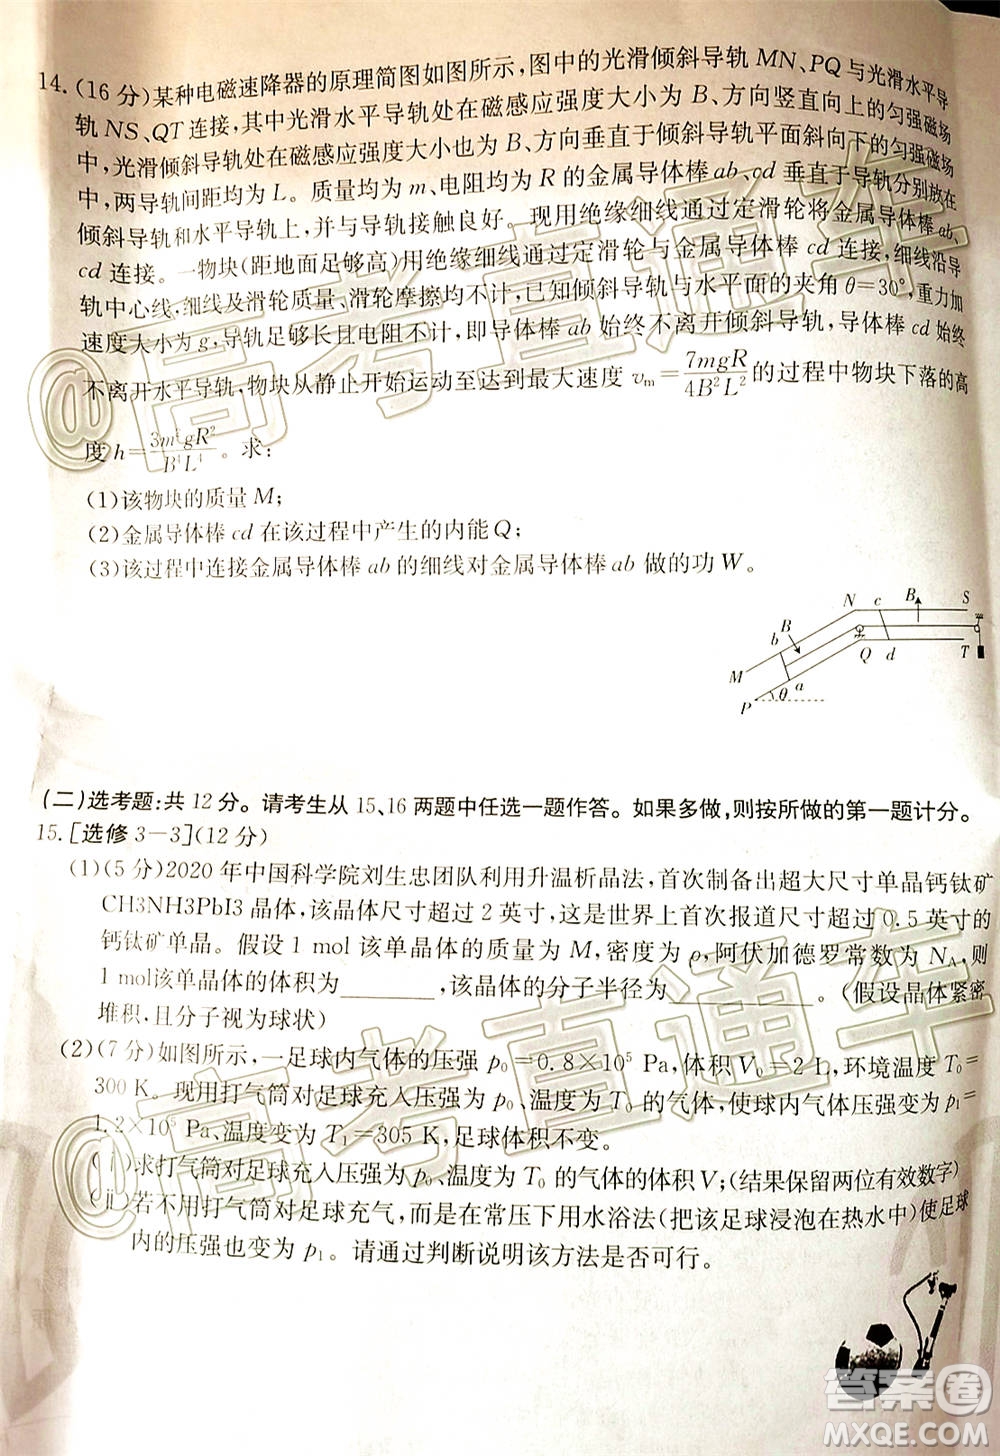 14. (16 分)某种电磁速降器的原理简图如图所示,图中的光滑倾斜导轨 MN、PQ 与光滑水平导
轨 NS、QT 连接,其中光滑水平导轨处在磁感应强度大小为 B、方向竖直向上的匀强磁场
中,光滑倾斜导轨处在磁感应强度大小也为 B、方向垂直于倾斜导轨平面斜向下的匀强磁场
中,两导轨间距均为 L。质量均为 m、电阻均为 R 的金属导体棒 ab、cd 垂直于导轨分别放在
倾斜导轨和水平导轨上,并与导轨接触良好。现用绝缘细线通过定滑轮将金属导体棒 ab、
cd 连接。一物块(距地面足够高)用绝缘细线通过定滑轮与金属导体棒 cd 连接,细线沿导
轨中心线,细线及滑轮质量、滑轮摩擦均不计,已知倾斜导轨与水平面的夹角 θ=30°,重力加
速度大小为 g,导轨足够长且电阻不计,即导体棒 ab 始终不离开倾斜导轨,导体棒 cd 始终
不离开水平导轨,物块从静止开始运动至达到最大速度 vm=7mgR/4B²L² 的过程中物块下落的高
度 h=3m²gR²/B⁴L⁴。求:
(1)该物块的质量 M;
(2)金属导体棒 cd 在该过程中产生的内能 Q;
(3)该过程中连接金属导体棒 ab 的细线对金属导体棒 ab 做的功 W。
N c B S
b B
Q d T
M
a
P θ
(二)选考题:共 12 分。请考生从 15、16 两题中任选一题作答。如果多做,则按所做的第一题计分。
15. [选修 3—3](12 分)
(1)(5 分)2020 年中国科学院刘生忠团队利用升温析晶法,首次制备出超大尺寸单晶钙钛矿
CH3NH3PbI3 晶体,该晶体尺寸超过 2 英寸,这是世界上首次报道尺寸超过 0.5 英寸的
钙钛矿单晶。假设 1 mol 该单晶体的质量为 M,密度为 ρ,阿伏加德罗常数为 NA,则
1 mol 该单晶体的体积为______,该晶体的分子半径为________。(假设晶体紧密
堆积,且分子视为球状)
(2)(7 分)如图所示,一足球内气体的压强 p₀=0.8×10⁵ Pa、体积 V₀=2 L,环境温度 T₀=
300 K。现用打气筒对足球充入压强为 p₀、温度为 T₀ 的气体,使球内气体压强变为 p₁=
1.2×10⁵ Pa、温度变为 T₁=305 K,足球体积不变。
(ⅰ)求打气筒对足球充入压强为 p₀、温度为 T₀ 的气体的体积 V;(结果保留两位有效数字)
(ⅱ)若不用打气筒对足球充气,而是在常压下用水浴法(把该足球浸泡在热水中)使足球
内的压强也变为 p₁。请通过判断说明该方法是否可行。
@高考直通车
@高考直通车
答案圈
MXQE.COM